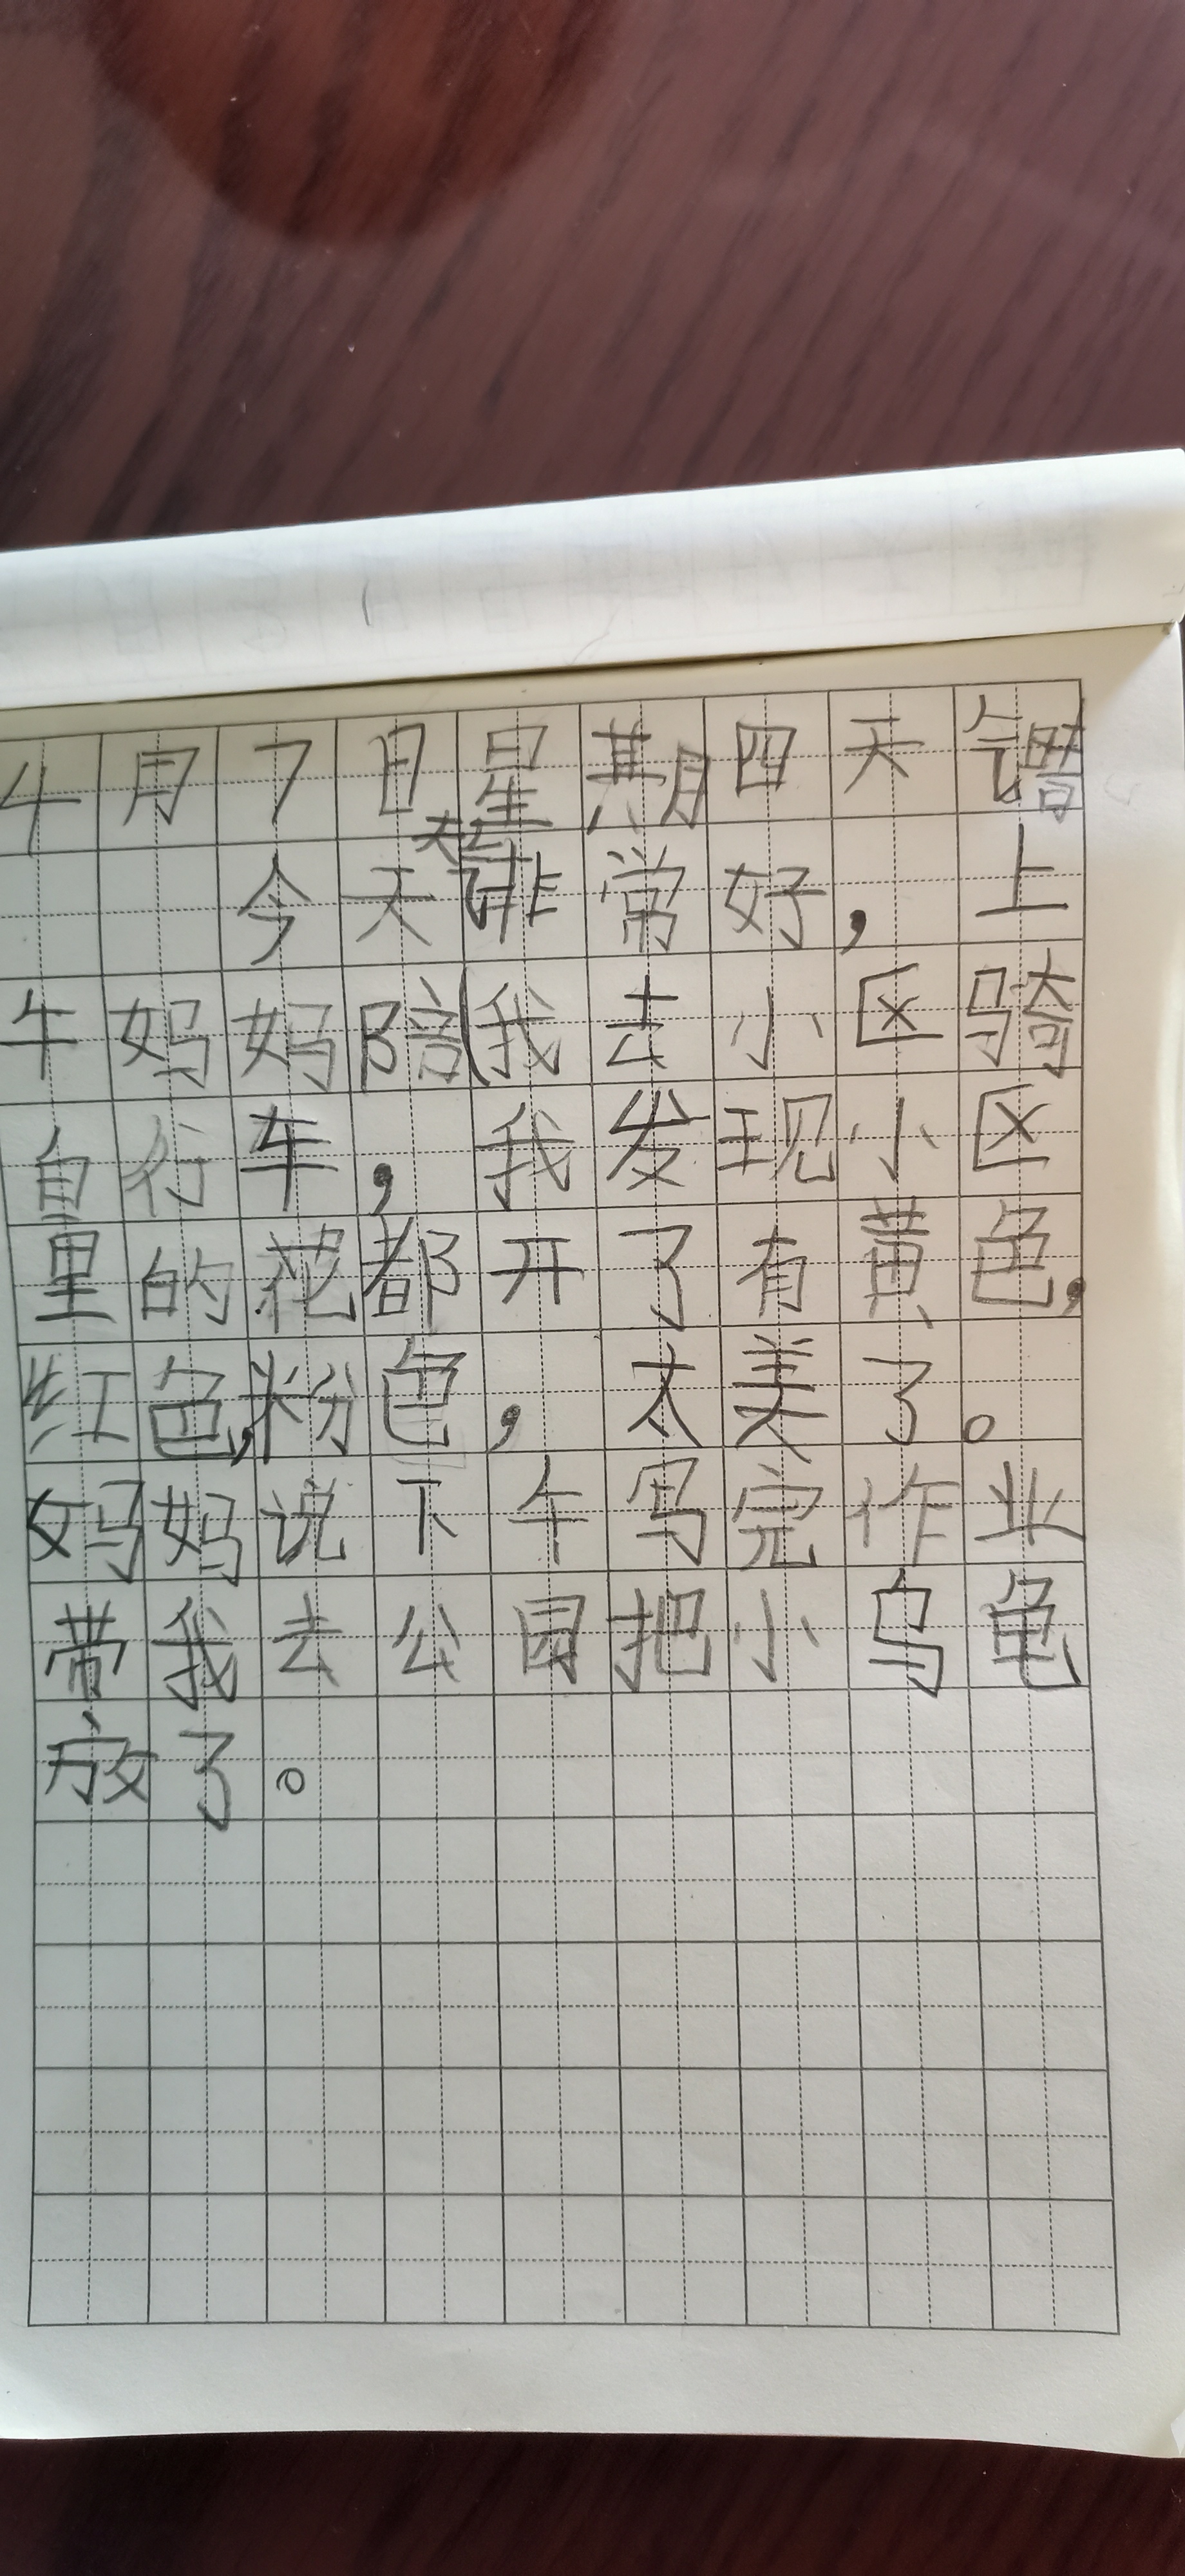 4月7日星期四天气晴
今天天气非常好，上
午妈妈陪我去小区骑
自行车，我发现小区
里的花都开了有黄色，
红色，粉色，太美了。
妈妈说下午写完作业
带我去公园把小乌龟
放了。